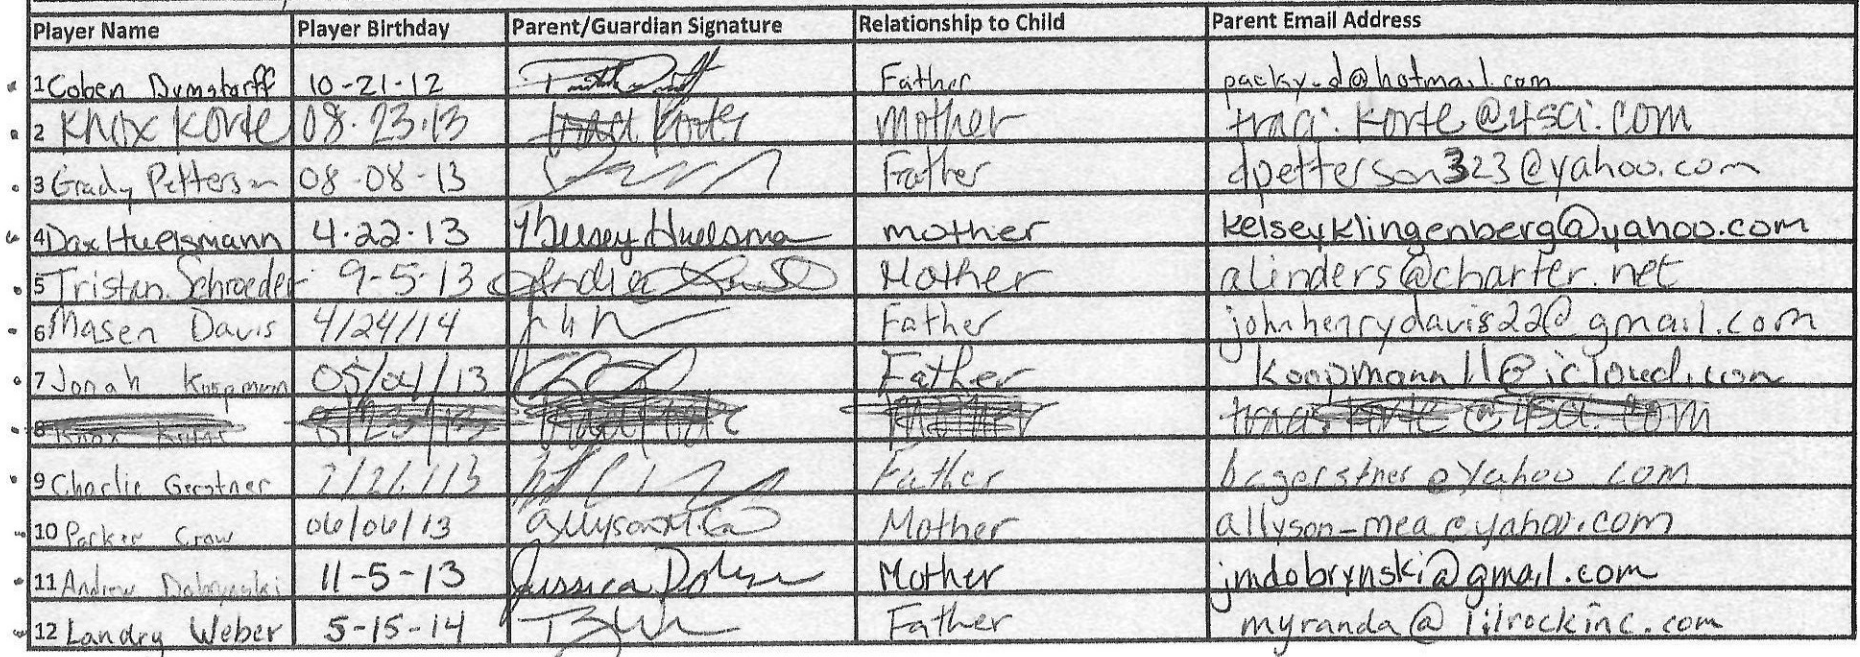 Player Name Player Birthday Parent/Guardian Signature Relationship to Child Parent Email Address
1 Coben Dumstorff 10-21-12 Father packy-d@hotmail.com
2 Knox Korte 08.23.13 Traci Korte Mother traci.korte@4sci.com
3 Grady Petterson 08-08-13 Father dpetterson323@yahoo.com
4 Dax Huelsmann 4.22.13 Kelsey Huelsma mother kelseyklingenberg@yahoo.com
5 Tristan Schroeder 9-5-13 Mother alinders@charter.net
6 Masen Davis 4/24/14 Father johnhenrydavis22@gmail.com
7 Jonah Koopmann 05/04/13 Father Koopmann11@icloud.com
8 Knox Korte
9 Charlie Gerstner Father bcgerstner@yahoo.com
10 Parker Crow 06/06/13 Mother allyson-mea@yahoo.com
11 Andrew Dobrynski 11-5-13 Jessica Mother jmdobrynski@gmail.com
12 Landry Weber 5-15-14 Father myranda@lilrockinc.com